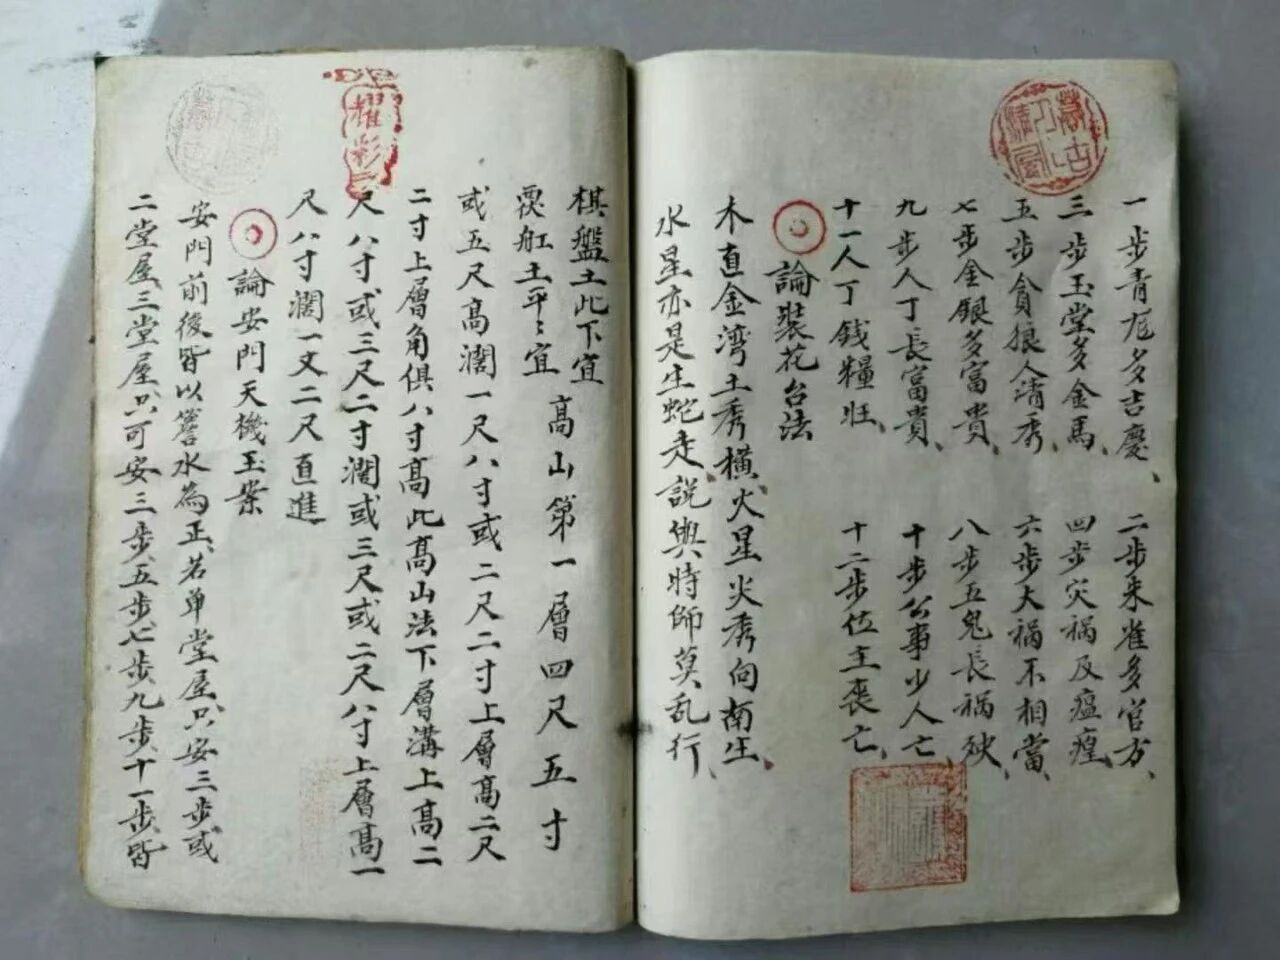 一步青龍多吉慶、 二步朱雀多官方、
三步玉堂多金馬、 四步灾禍及瘟瘟、
五步貪狼人清秀、 六步大禍不相當、
七步金銀多富貴、 八步五鬼長禍殃、
九步人丁長富貴、 十步公事少人亡、
十一人丁錢糧旺、 十二步位主喪亡、
論裝花台法
木直金湾土秀橫、火星火秀向南生、
水星亦是生蛇走、說與時師莫乱行、
棋盤土此下宜 高山第一層四尺五寸
土平〻宜
或五尺高濶一尺八寸或二尺二寸上層高二尺
二寸上層角俱八寸高此高山法下層溝上高二
尺八寸或三尺二寸濶或三尺或二尺八寸上層高一
尺八寸濶一丈二尺直進
論安門天機玉業
安門前後皆以簷水為正、若单堂屋、只安三步或
二堂屋三堂屋、只可安三步、五步、七步、九步、十一步、皆
耀彩